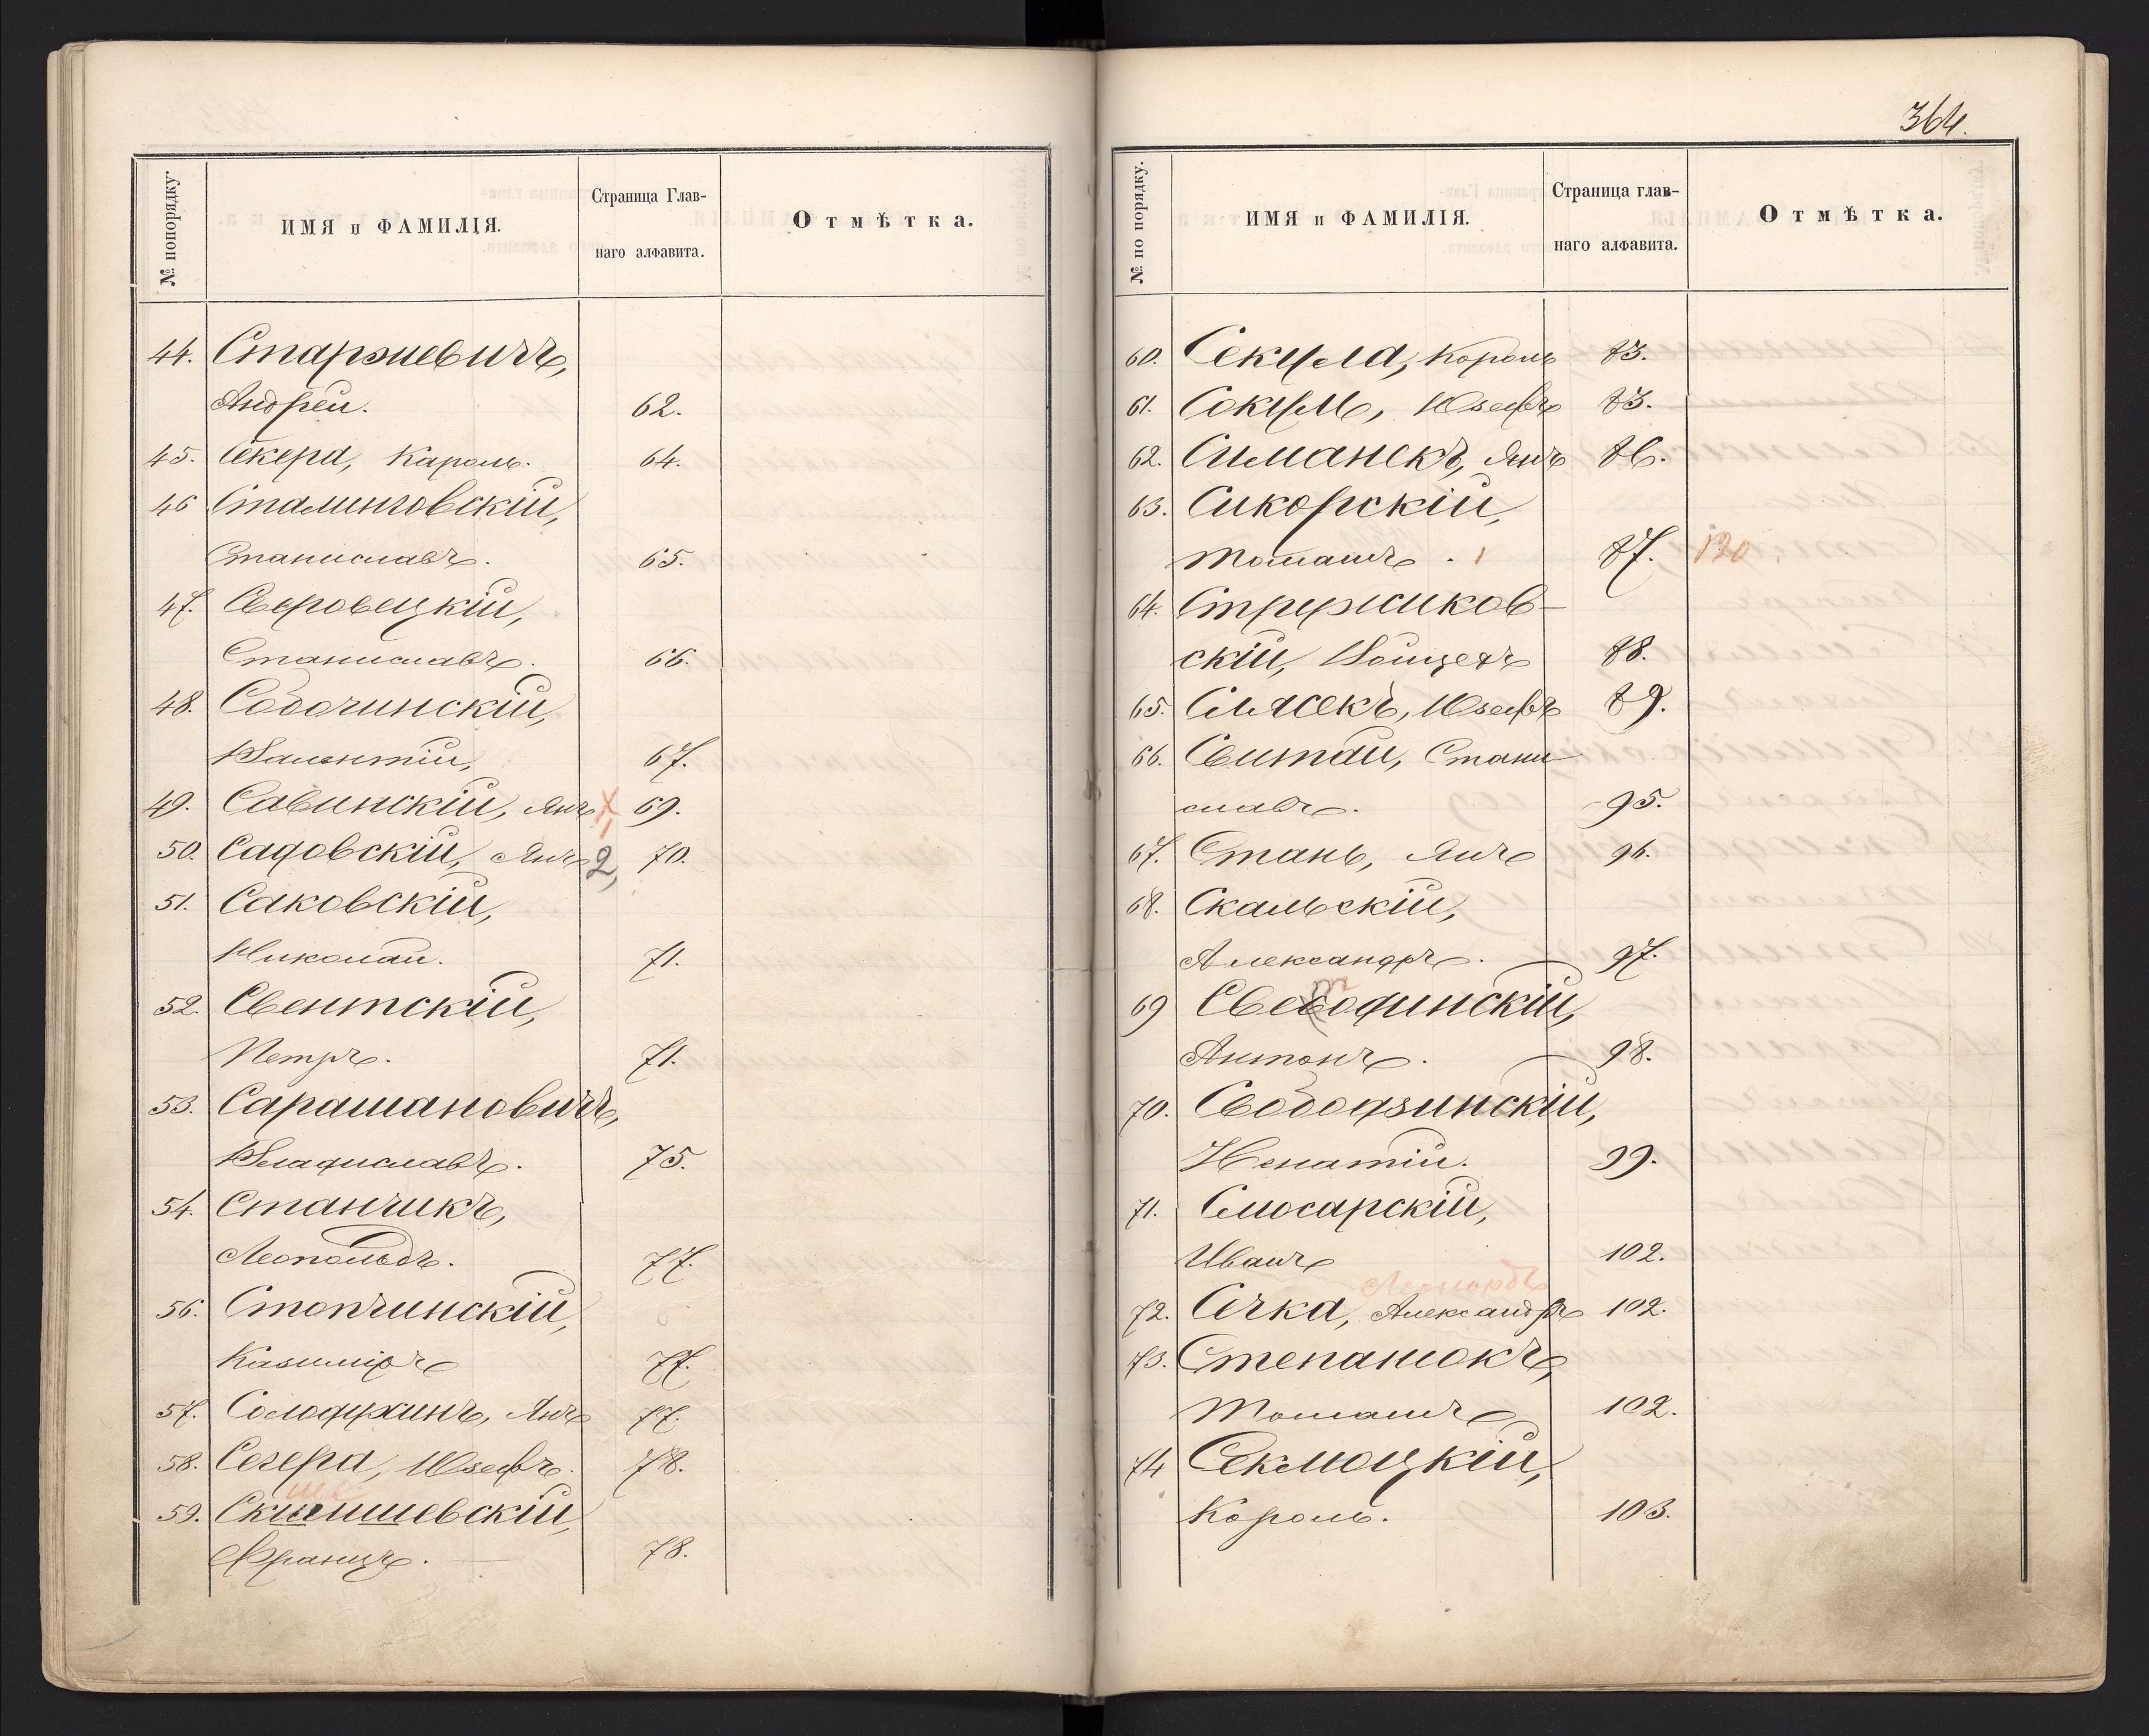 364.
№ попорядку.
ИМЯ и ФАМИЛІЯ.
Страница Глав-
наго алфавита.
Отмѣтка.
44. Старжиевичъ,
Андрей. 62.
45. Секера, Кароль. 64.
46 Сталинговскій,
Станиславъ. 65.
47. Серовецкій,
Станиславъ. 66.
48. Соботинскій,
Валентій, 67.
49. Савинскій, Янъ 69.
50. Садовскій, Янъ 2, 70.
51. Саковскій,
Николай. 71.
52. Свентскій,
Петръ. 71.
53. Сарашановичъ,
Владиславъ. 75.
54. Станчикъ,
Леопольдъ. 77.
56. Стопчинскій,
Казиміръ 77.
57. Солодухинъ, Янъ 77.
58. Сегера, Юзефъ. 78.
59. Скишишевскій,
Францъ. 78.
№ по порядку.
ИМЯ и ФАМИЛІЯ.
Страница глав-
наго алфавита.
Отмѣтка.
60. Секула, Кароль 83.
61. Сокулъ, Юзефъ 83.
62. Симанекъ, Янъ 86.
63. Сикорскій,
Томашъ. 1 87. 130.
64. Стружиков-
скій, Войцехъ 88.
65. Слясекъ, Юзефъ 89.
66. Свитай, Стани
славъ. 95.
67. Стань, Янъ 96.
68. Скальскій,
Александръ. 97.
69 Свебодинскій,
Антонъ. 98.
70. Свободзинскій,
Игнатій. 99.
71. Слюсарскій,
Иванъ 102.
Леонардъ
72. Сечка, Александръ 102.
73. Степанюкъ,
Томашъ 102.
74 Секлюцкій,
Кароль. 103.